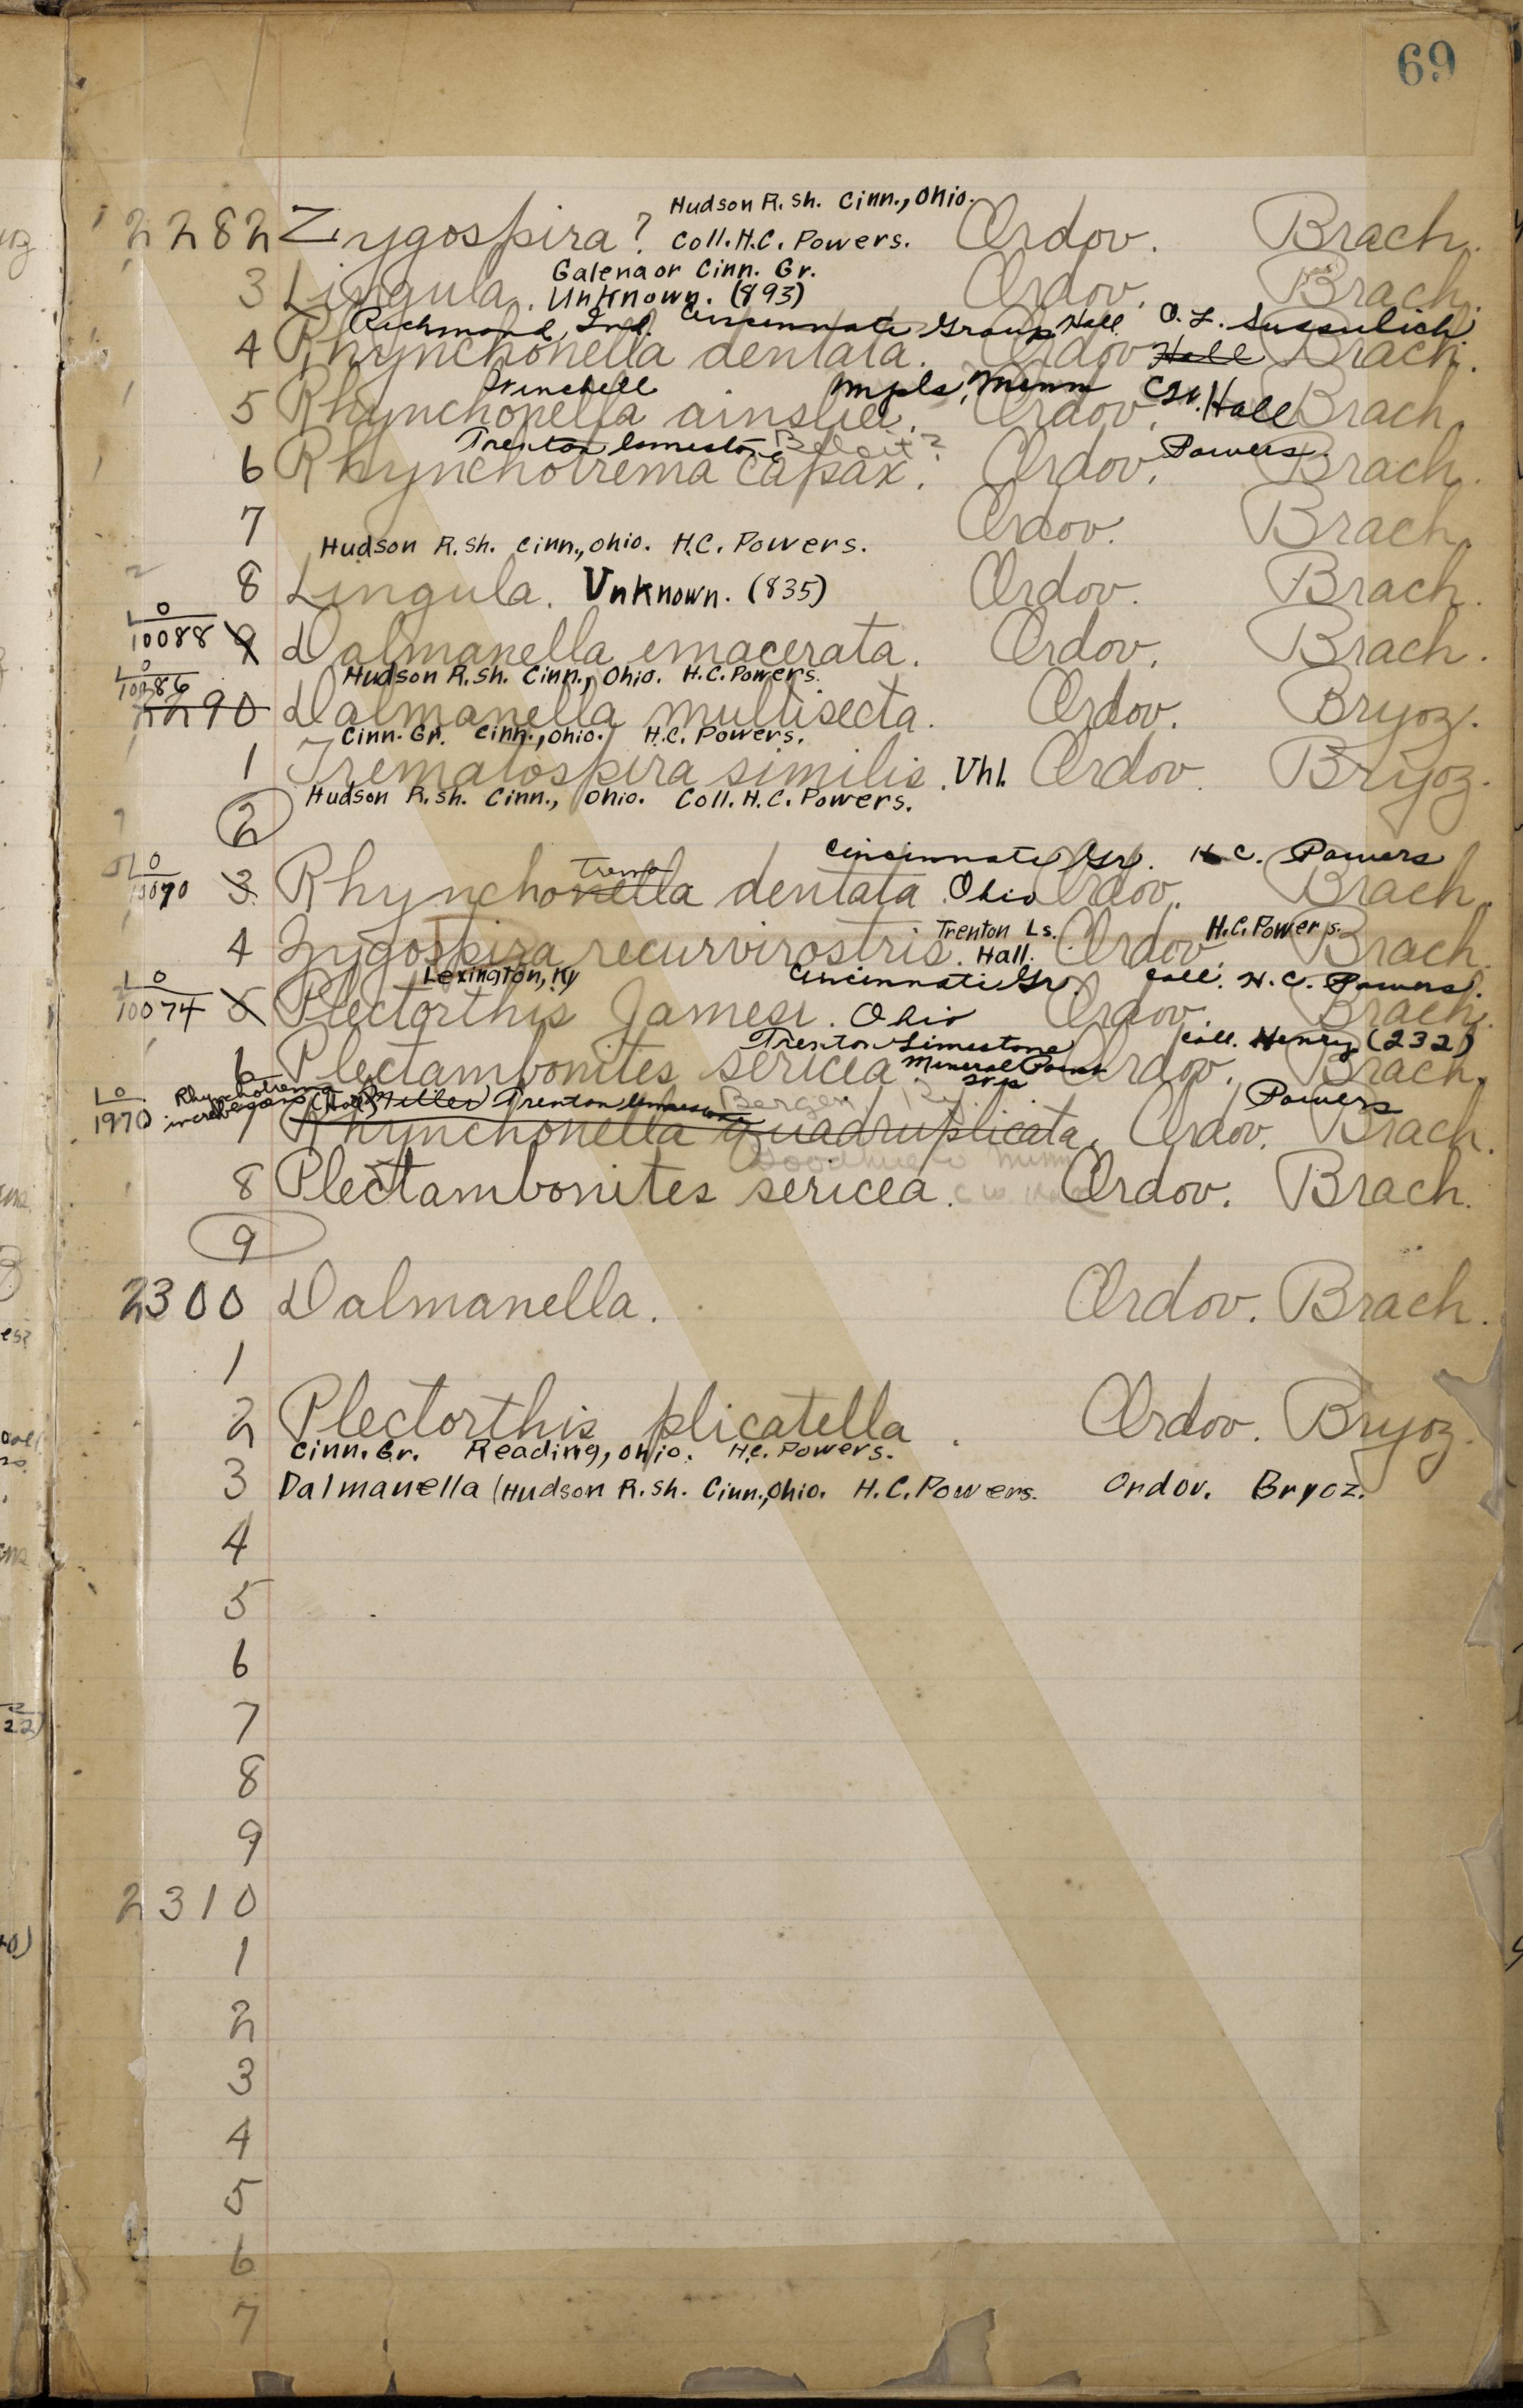 69
Hudson R. Sh. Cinn., Ohio.
2282 Zygospira? Coll. H.C. Powers. Ordov. Brach.
Galena or Cinn. Gr.
3 Lingula. Unknown. (893) Ordov. Brach.
Richmond, Ind. Cincinnati Group Hall O. L.
4 Rhynchonella dentata. Ordov. Hall Brach.
Winchell Mpls, Minn C.W. Hall
5 Rhynchonella ainsliei. Ordov. Brach.
Trenton limestone Beloit? Powers.
6 Rhynchotrema capax. Ordov. Brach.
7 Ordov. Brach.
Hudson R. Sh. Cinn., Ohio. H.C. Powers.
8 Lingula. Unknown. (835) Ordov. Brach.
LO
10088 9 Dalmanella emacerata. Ordov. Brach.
LO Hudson R. Sh. Cinn., Ohio. H.C. Powers.
10086
2290 Dalmanella multisecta. Ordov. Bryoz.
Cinn. Gr. Cinn., Ohio. H.C. Powers.
1 Trematospira similis. Uhl. Ordov. Bryoz.
Hudson R. Sh. Cinn., Ohio. Coll. H.C. Powers.
2
LO trema Cincinnati Gr. H. C. Powers
10070 3 Rhynchonella dentata. Ohio Ordov. Brach.
Trenton Ls. H.C. Powers.
4 Zygospira recurvirostris. Hall. Ordov. Brach.
LO Lexington, Ky Cincinnati Gr. Coll. H. C. Powers.
10074 5 Plectorthis Jamesi. Ohio Ordov. Brach.
Trenton Limestone Coll. Henry (232)
6 Plectambonites sericea. Mineral Point Wis Ordov. Brach.
LO Rhynchotrema (Hall) Trenton limestone Bergen Powers
1970 7 Rhynchonella quadruplicata. Ordov. Brach.
Goodhue Minn
8 Plectambonites sericea. C W Hall Ordov. Brach.
9
2300 Dalmanella. Ordov. Brach.
1
2 Plectorthis plicatella. Ordov. Bryoz.
Cinn. Gr. Reading, Ohio. H.C. Powers.
3 Dalmanella (Hudson R. Sh. Cinn., Ohio. H.C. Powers. Ordov. Bryoz.
4
5
6
7
8
9
2310
1
2
3
4
5
6
7